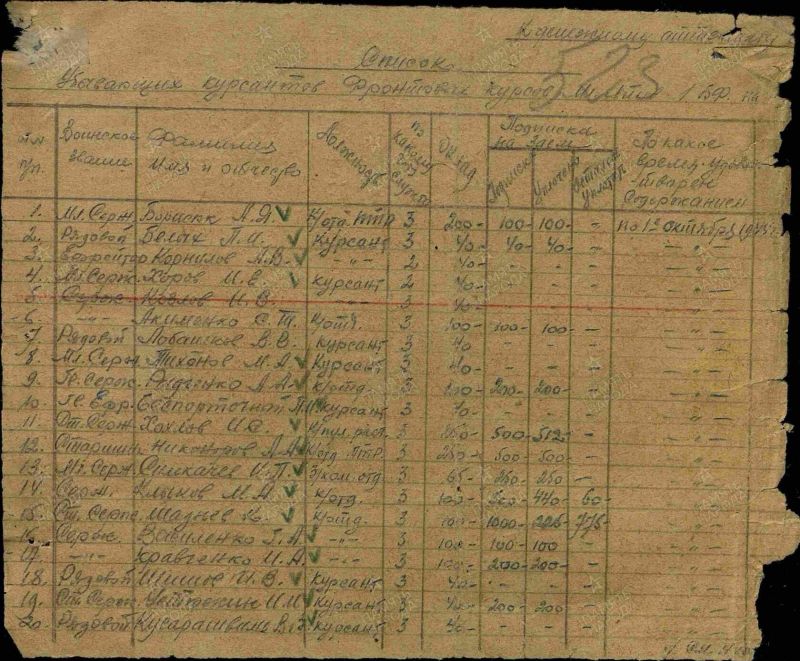 К денежному аттестату
Список 523
Убывающих курсантов Фронтовых курсов 1 БФ. на
№№ п/п. Воинское звание Фамилия Имя и отчество Должность по какому году службы Оклад Подписка на заем Подписка Уплачено Осталось уплатить По какое время удовлетварен содержанием
1. Мл. Серж. Борисюк А.Я К/отд. ПТР 3 200- 100- 100- - по 1 е октября 194
2. Рядовой Белых П.И. курсант 3 40- 40- 40- - -"-
3. Ефрейтор Корнилов А.В. -"- 2 40- - -"-
4. Мл. Серж. Хоров И.Е курсант 2 40- - -"-
5. Серж. Козлов И.В. -"- 3 40- - -"-
6. -"- Акименко С.Т. К/отд. 3 100- 100- 100- - -"-
7. Рядовой В.В. курсант 3 40- - - - -"-
8. Мл. Серж Тихонов М.А Курсант 3 40- - - - -"-
9. Гв. Серж. А.А К/отд. 3 200- 200- - -"-
10. Гв. Ефр. Беспорточный П.И курсант 3 40- - - - -"-
11. Ст. Серж Хохлов И.С. К/пул. расч. 3 500- 512- - -"-
12. Старшин. Никоноров А.А К/отд. ПТР. 3 250- 500- 500- - -"-
13. Мл. Серж. Спикачев И.П З/ком. отд. 3 65- 250- 250- - -"-
14. Серж. Клыков М.А К/отд. 3 100- 500- 440- 60- -"-
15. Ст. Серж. К/отд. 3 100- 1000- 225- 775- -"-
16. Серж. Вавиленко Г.А -"- 3 100- 100- 100 - -"-
17. -"- Кравченко И.А. -"- 3 100- 200- 200- - -"-
18. Рядовой Шишин И.В. курсант 3 40- - - - -"-
19. Ст. Серж. И.И курсант 3 40- 200- 200- - -"-
20. Рядовой Кусарашвили В.З. курсант 3 40- - - - -"-